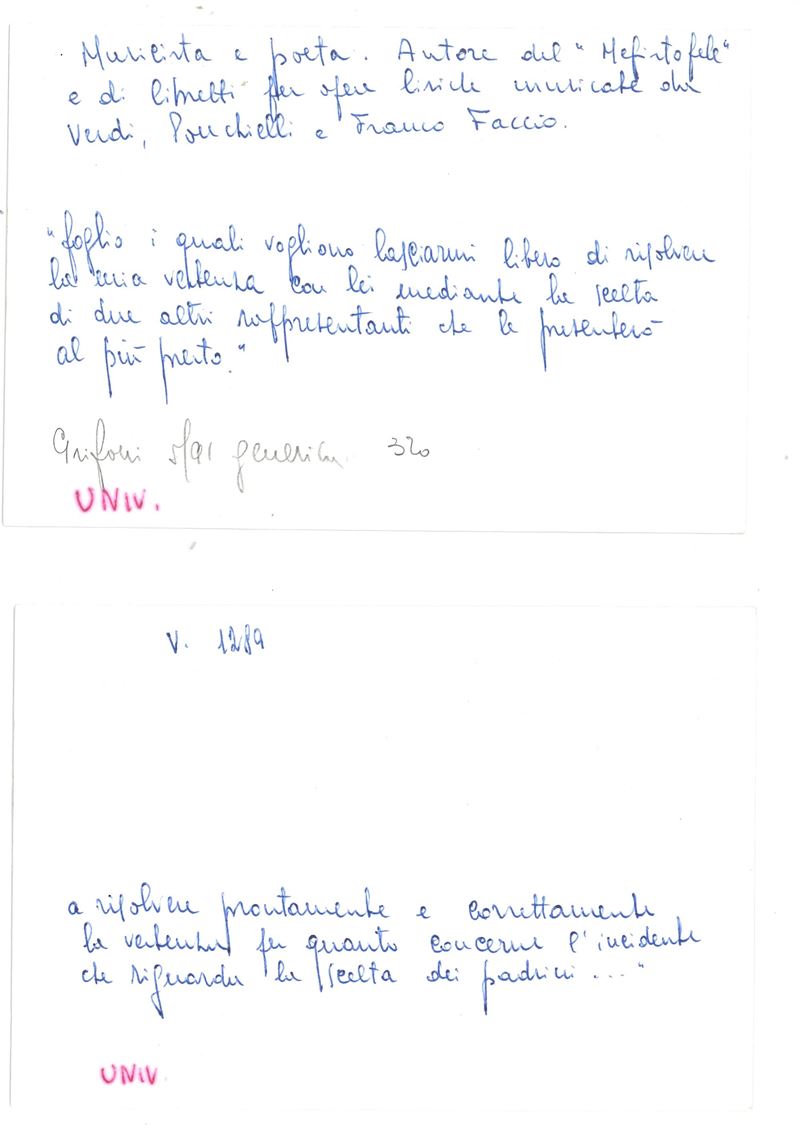 Musicista e poeta. Autore del "Mefistofele"
e di libretti per opere liriche musicate da
Verdi, Ponchielli e Franco Faccio.
"foglio i quali vogliono lasciarmi libero di risolvere
la mia vertenza con lei mediante la scelta
di due altri rappresentanti che le presenterò
al più presto."
Grifoni 5/91 generica 320
UNIV.
V. 1289
a risolvere prontamente e correttamente
la vertenza per quanto concerne l'incidente
che riguarda la scelta dei padrini ..."
UNIV